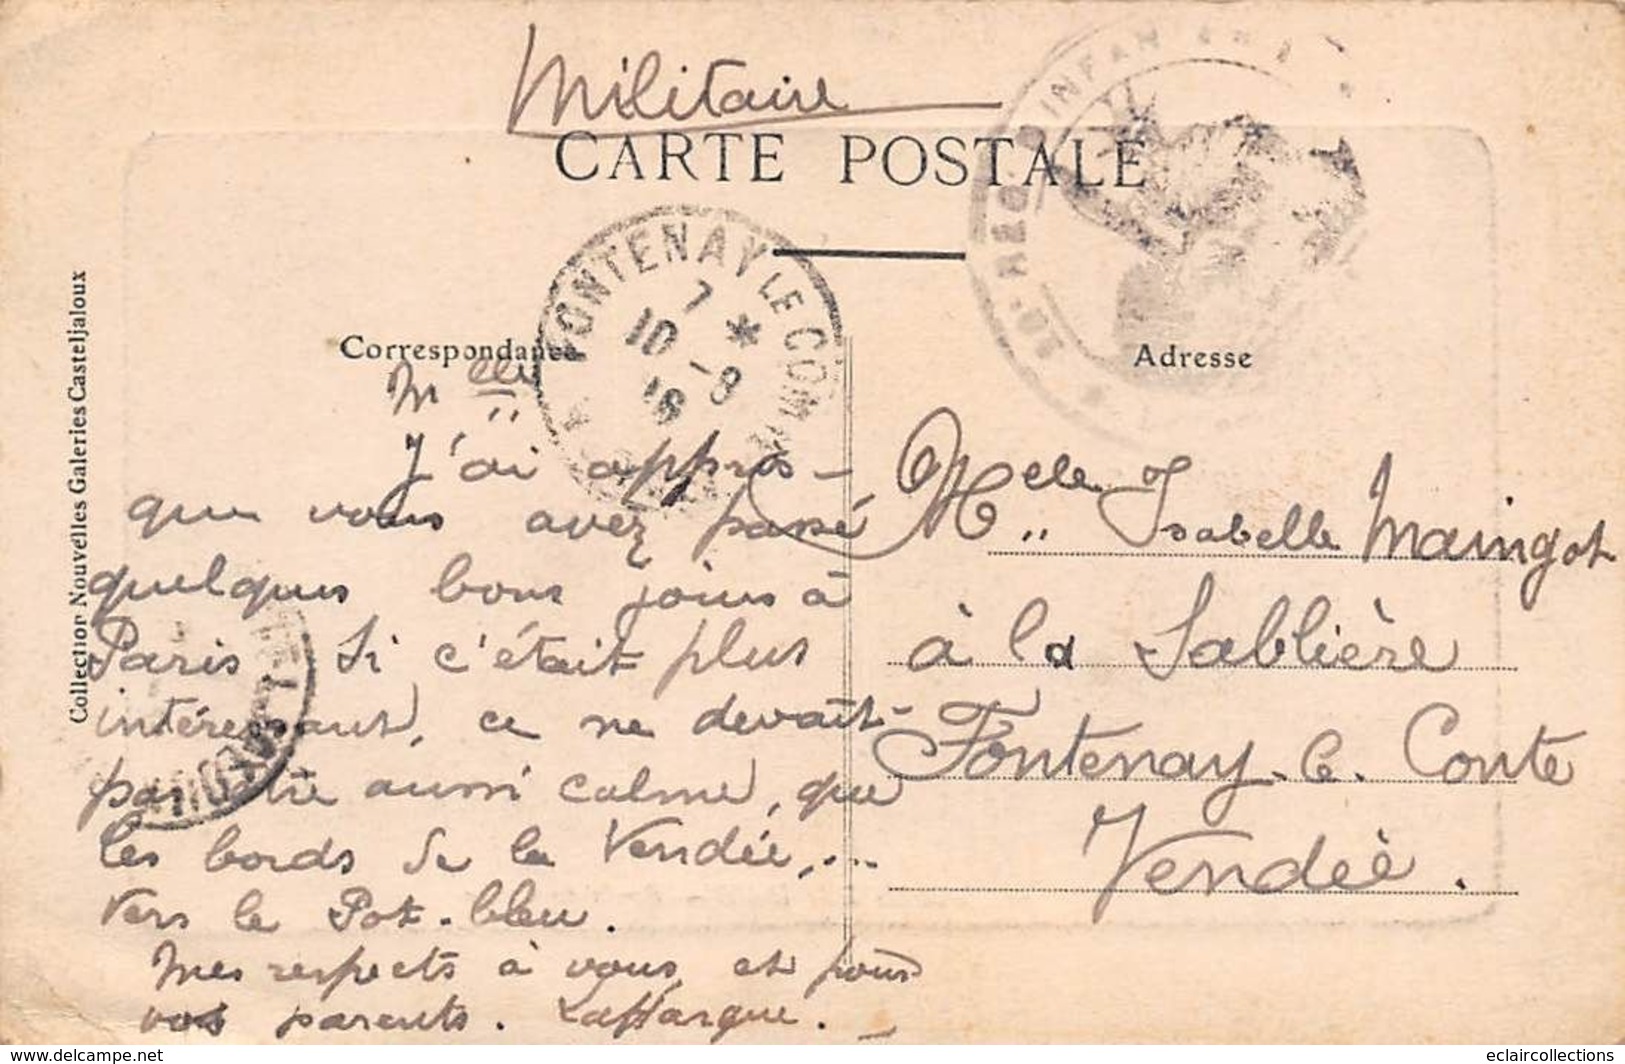 Militaire
CARTE POSTALE
INFANTERIE
FONTENAY LE COM
7 *
10 -8
16
Correspondance
Adresse
Collection Nouvelles Galeries Casteljaloux
Melle
J'ai appris
que vous avez passé
quelques bons jours à
Paris Si c'était plus
intéressant, ce ne devait
paraître aussi calme, que
les bords de la Vendée,...
vers le Pot-bleu.
Mes respects à vous, et pour
vos parents. Laffargue.
Melle Isabelle Maingot
à la Sablière
Fontenay-le-Conte
Vendée.
www.delcampe.net
eclaircollections